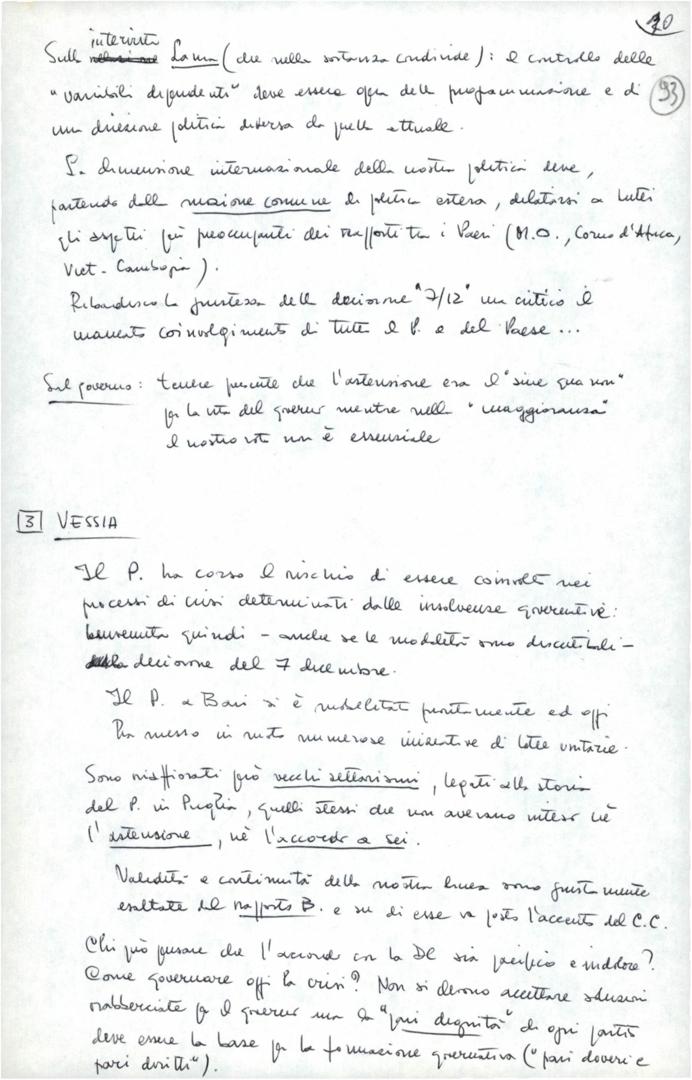 70
93
intervista
Sull' Lama (che nella sostanza condivide): il controllo delle
"variabili dipendenti" deve essere opera della programmazione e di
una direzione politica diversa da quella attuale.
La dimensione internazionale della nostra politica deve,
partendo dalla mozione comune di politica estera, dilatarsi a tutti
gli aspetti più preoccupanti dei rapporti tra i Paesi (M.O., Corno d'Africa,
Viet-Cambogia).
Ribadisco la giustezza della decisione "7/12" ma critico il
mancato coinvolgimento di tutto il P. e del Paese...
Sul governo: tenere presente che l'astensione era il "sine qua non"
per la vita del governo mentre nella "maggioranza"
il nostro voto non è essenziale
3 VESSIA
Il P. ha corso il rischio di essere coinvolto nei
processi di crisi determinati dalle insolvenze governative:
benvenuta quindi - anche se le modalità sono discutibili -
la decisione del 7 dicembre.
Il P. a Bari si è mobilitato prontamente ed oggi
ha messo in moto numerose iniziative di lotta unitarie.
Sono riaffiorati però vecchi settarismi, legati alla storia
del P. in Puglia, quelli stessi che non avevano inteso né
l'astensione, né l'accordo a sei.
Validità e continuità della nostra linea sono giustamente
esaltate dal rapporto B. e su di esse va posto l'accento del C.C.
Chi può pensare che l'accordo con la DC sia pacifico e indolore?
Come governare oggi la crisi? Non si devono accettare soluzioni
rabberciate per il governo ma la "pari dignità" di ogni partito
deve essere la base per la formazione governativa ("pari doveri e
pari diritti").